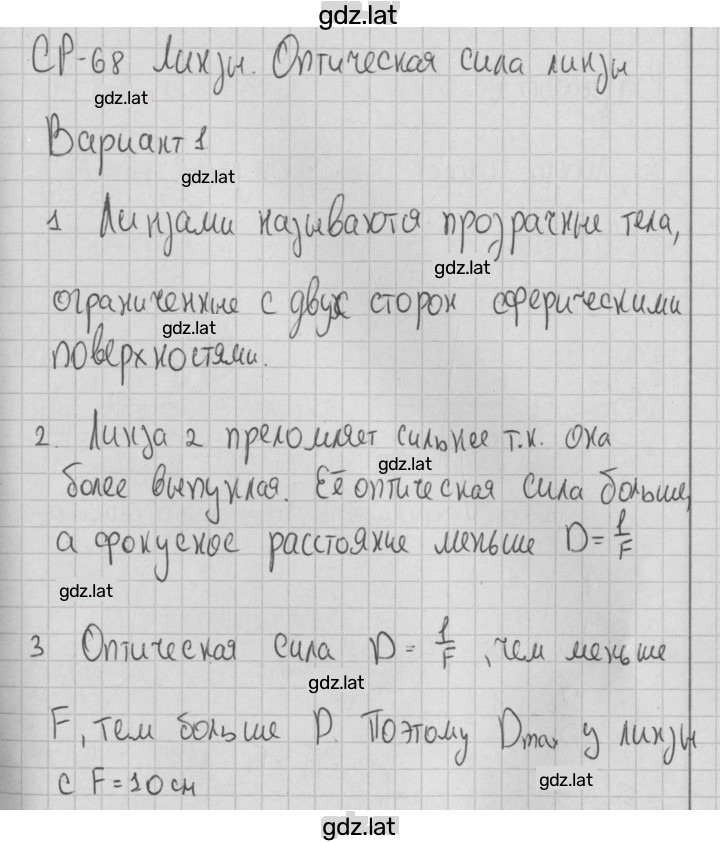 gdz.lat
СР-68 Линзы. Оптическая сила линзы
gdz.lat
Вариант 1
gdz.lat
1 Линзами называются прозрачные тела,
gdz.lat
ограниченные с двух сторон сферическими
gdz.lat
поверхностями.
2. Линза 2 преломляет сильнее т.к. она
gdz.lat
более выпуклая. Её оптическая сила больше,
а фокусное расстояние меньше D = 1/F
gdz.lat
3 Оптическая сила D = 1/F, чем меньше
gdz.lat
F, тем больше D. Поэтому Dmax у линзы
с F = 10 см
gdz.lat
gdz.lat